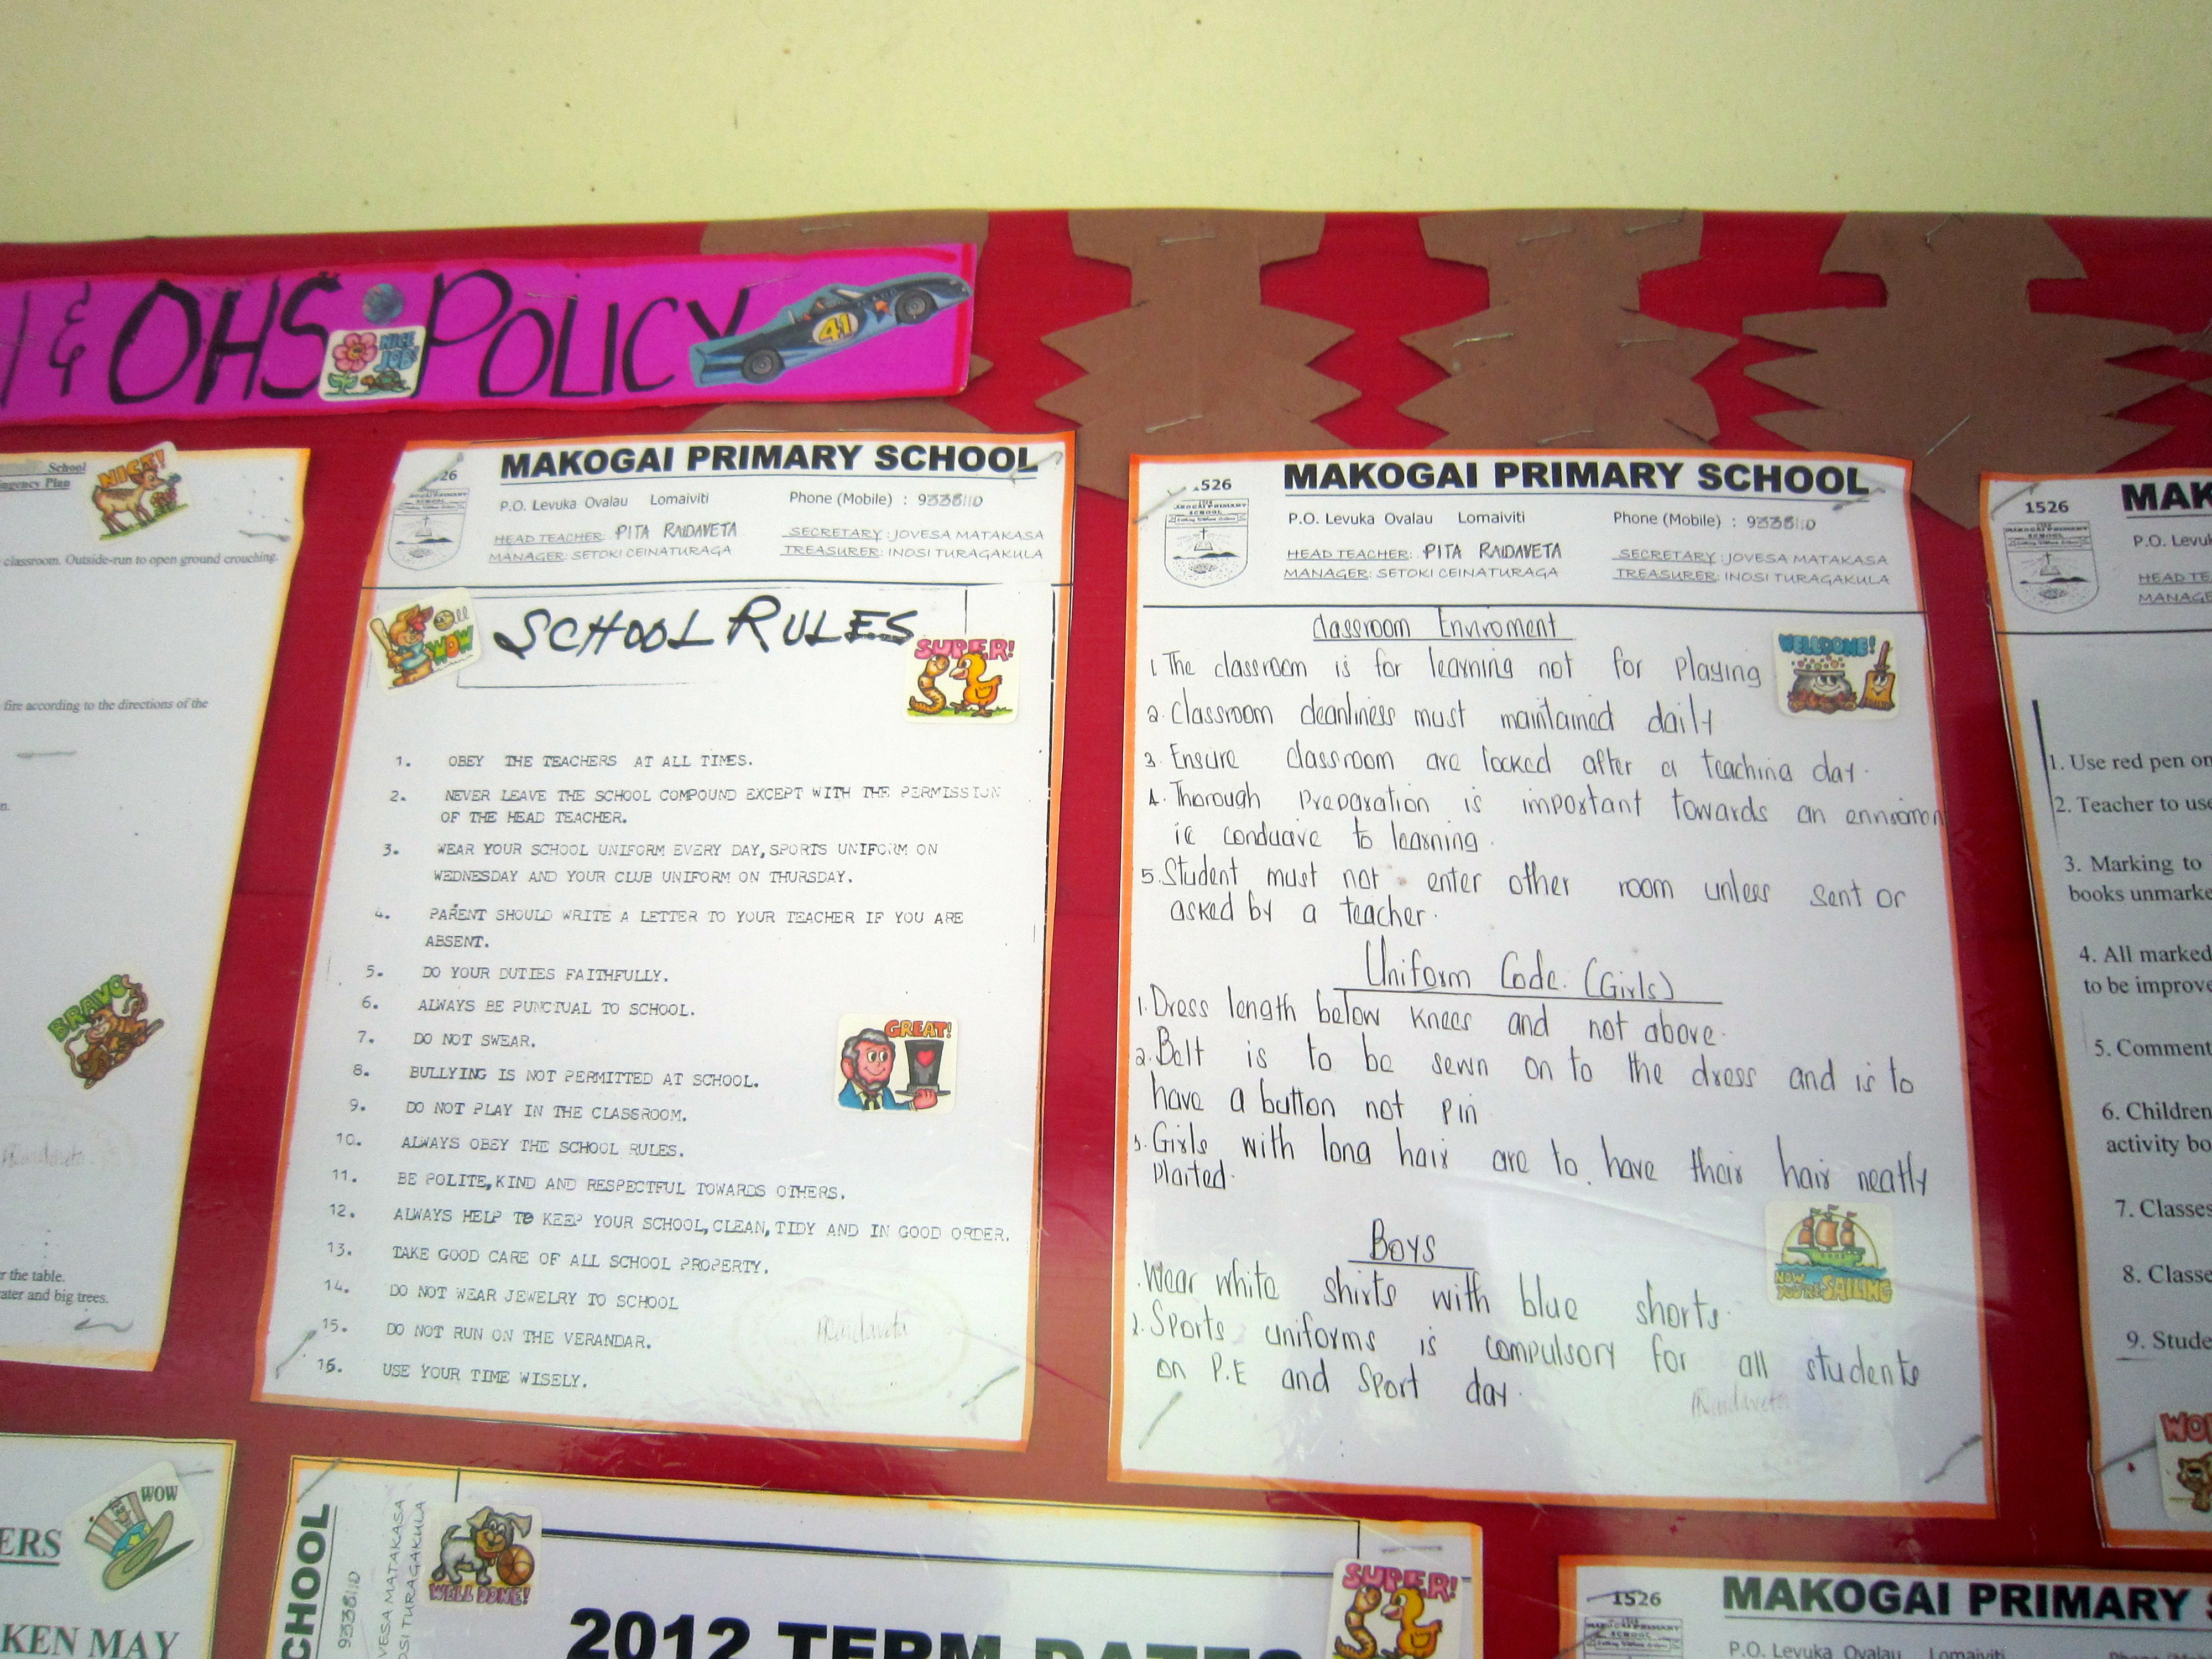 & OHS POLICY
NICE JOB!
41
School
ngency Plan
NICE!
classroom. Outside-run to open ground crouching.
fire according to the directions of the
BRAVO
r the table.
ater and big trees.
26
MAKOGAI PRIMARY SCHOOL
P.O. Levuka Ovalau Lomaiviti Phone (Mobile) : 9338110
HEAD TEACHER: PITA RAIDAVETA SECRETARY: JOVESA MATAKASA
MANAGER: SETOKI CEINATURAGA TREASURER: INOSI TURAGAKULA
WOW
SCHOOL RULES
SUPER!
1. OBEY THE TEACHERS AT ALL TIMES.
2. NEVER LEAVE THE SCHOOL COMPOUND EXCEPT WITH THE PERMISSION
OF THE HEAD TEACHER.
3. WEAR YOUR SCHOOL UNIFORM EVERY DAY, SPORTS UNIFORM ON
WEDNESDAY AND YOUR CLUB UNIFORM ON THURSDAY.
4. PARENT SHOULD WRITE A LETTER TO YOUR TEACHER IF YOU ARE
ABSENT.
5. DO YOUR DUTIES FAITHFULLY.
6. ALWAYS BE PUNCTUAL TO SCHOOL.
7. DO NOT SWEAR.
8. BULLYING IS NOT PERMITTED AT SCHOOL.
9. DO NOT PLAY IN THE CLASSROOM.
10. ALWAYS OBEY THE SCHOOL RULES.
11. BE POLITE, KIND AND RESPECTFUL TOWARDS OTHERS.
12. ALWAYS HELP TO KEEP YOUR SCHOOL, CLEAN, TIDY AND IN GOOD ORDER.
13. TAKE GOOD CARE OF ALL SCHOOL PROPERTY.
14. DO NOT WEAR JEWELRY TO SCHOOL
15. DO NOT RUN ON THE VERANDAR.
16. USE YOUR TIME WISELY.
GREAT!
PRaidaveta
1526
MAKOGAI PRIMARY SCHOOL
P.O. Levuka Ovalau Lomaiviti Phone (Mobile) : 9338110
HEAD TEACHER: PITA RAIDAVETA SECRETARY: JOVESA MATAKASA
MANAGER: SETOKI CEINATURAGA TREASURER: INOSI TURAGAKULA
Classroom Enviroment
WELLDONE!
1. The classroom is for learning not for playing
2. Classroom cleanliness must maintained daily
3. Ensure classroom are locked after a teaching day.
4. Thorough preparation is important towards an
ic conducive to learning.
5. Student must not enter other room unless sent or
asked by a teacher.
Uniform Code. (Girls)
1. Dress length below knees and not above.
2. Belt is to be sewn on to the dress and is to
have a button not pin
3. Girls with long hair are to have their hair neatly
plaited.
Boys
. Wear white shirts with blue shorts.
2. Sports uniforms is compulsory for all students
on P.E and sport day.
NOW YOU'RE SAILING
PRaidaveta
1526
MAK
P.O. Levuk
HEAD TE
MANAGE
1. Use red pen on
2. Teacher to use
3. Marking to
books unmarke
4. All marked
to be improve
5. Comment
6. Children
activity bo
7. Classes
8. Classe
9. Stude
WO
ERS
WOW
KEN MAY
CHOOL
9338110
VESA MATAKASA
OSI TURAGAKULA
WELL DONE!
2012 TERM DATES
SUPER!
1526
MAKOGAI PRIMARY S
P.O. Levuka Ovalau Lomaiviti